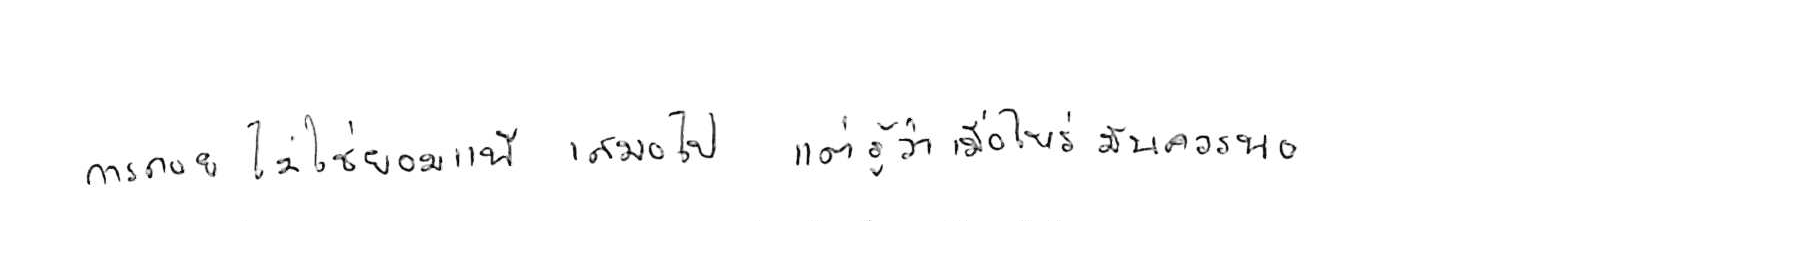 การถอย ไม่ใช่ยอมแพ้ เสมอไป แต่รู้ว่า เมื่อไหร่ มันควรพอ